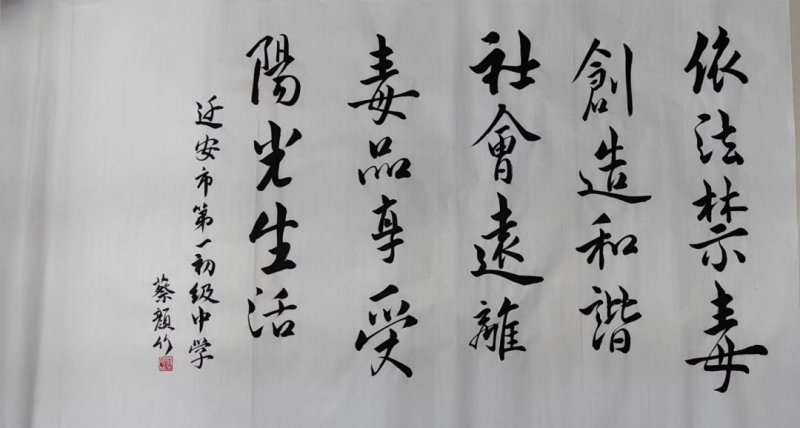 依法禁毒
創造和諧
社會遠離
毒品享受
陽光生活
迁安市第一初级中学
蔡顏竹